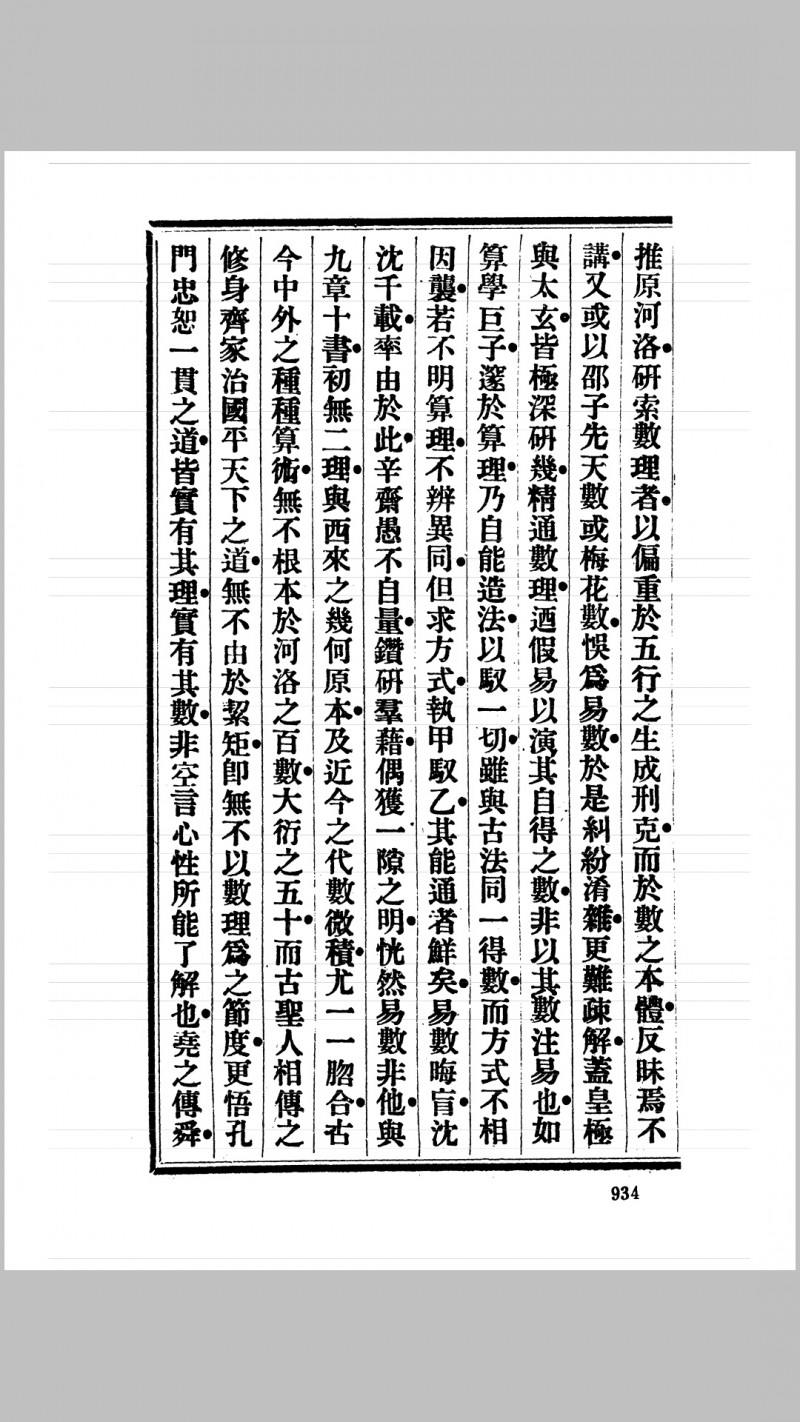 推原河洛●硏索數理者●以偏重於五行之生成刑克●而於數之本體●反昧焉不
講●又或以邵子先天數或梅花數●悞爲易數●於是糾紛淆雜●更難疎解●蓋皇極
與太玄●皆極深硏幾●精通數理●迺假易以演其自得之數●非以其數注易也●如
算學巨子●邃於算理●乃自能造法●以馭一切●雖與古法同一得數●而方式不相
因襲●若不明算理●不辨異同●但求方式●執甲馭乙●其能通者鮮矣●易數晦盲沈
沈千載●率由於此●辛齋愚不自量●鑽硏羣藉●偶獲一隙之明●恍然易數非他●與
九章十書●初無二理●與西來之幾何原本●及近今之代數微積●尤一一脗合●古
今中外之種種算術●無不根本於河洛之百數●大衍之五十●而古聖人相傳之
修身齊家治國平天下之道●無不由於絜矩●卽無不以數理爲之節度●更悟孔
門忠恕一貫之道●皆實有其理●實有其數●非空言心性所能了解也●堯之傳舜●
934